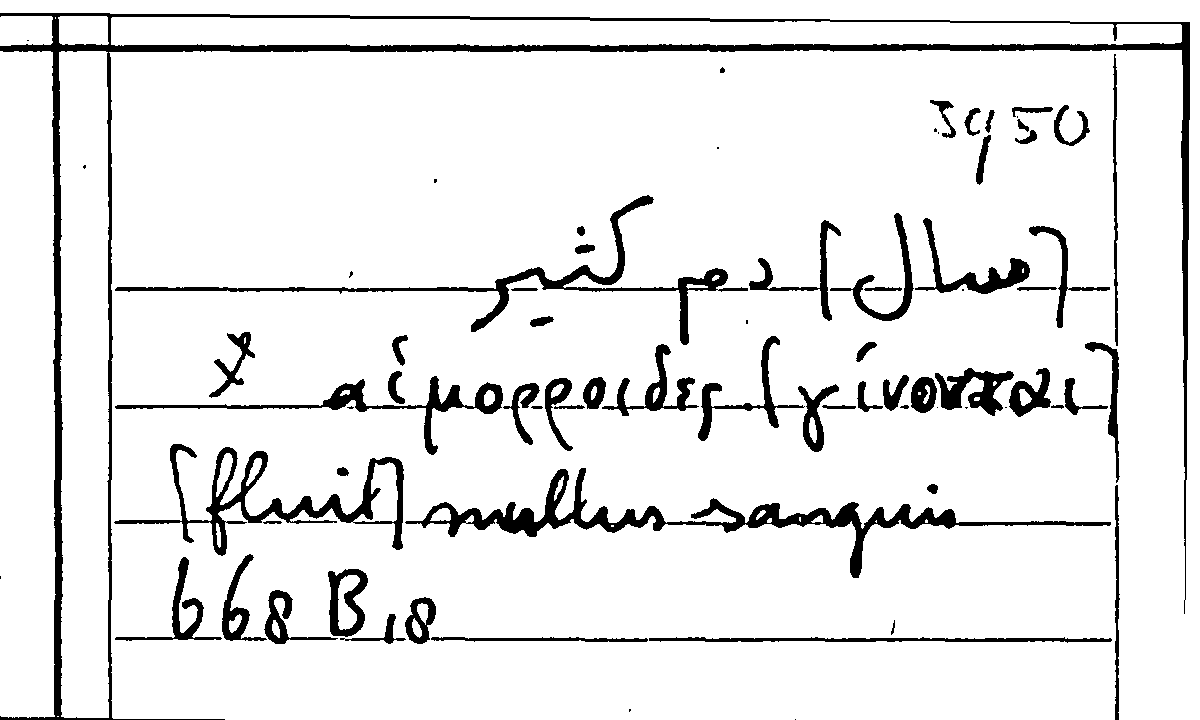 3950
[سال] دم كثير
x αἱμορροιδες. [γίνονται]
[fluit] multus sanguis
668 B 18